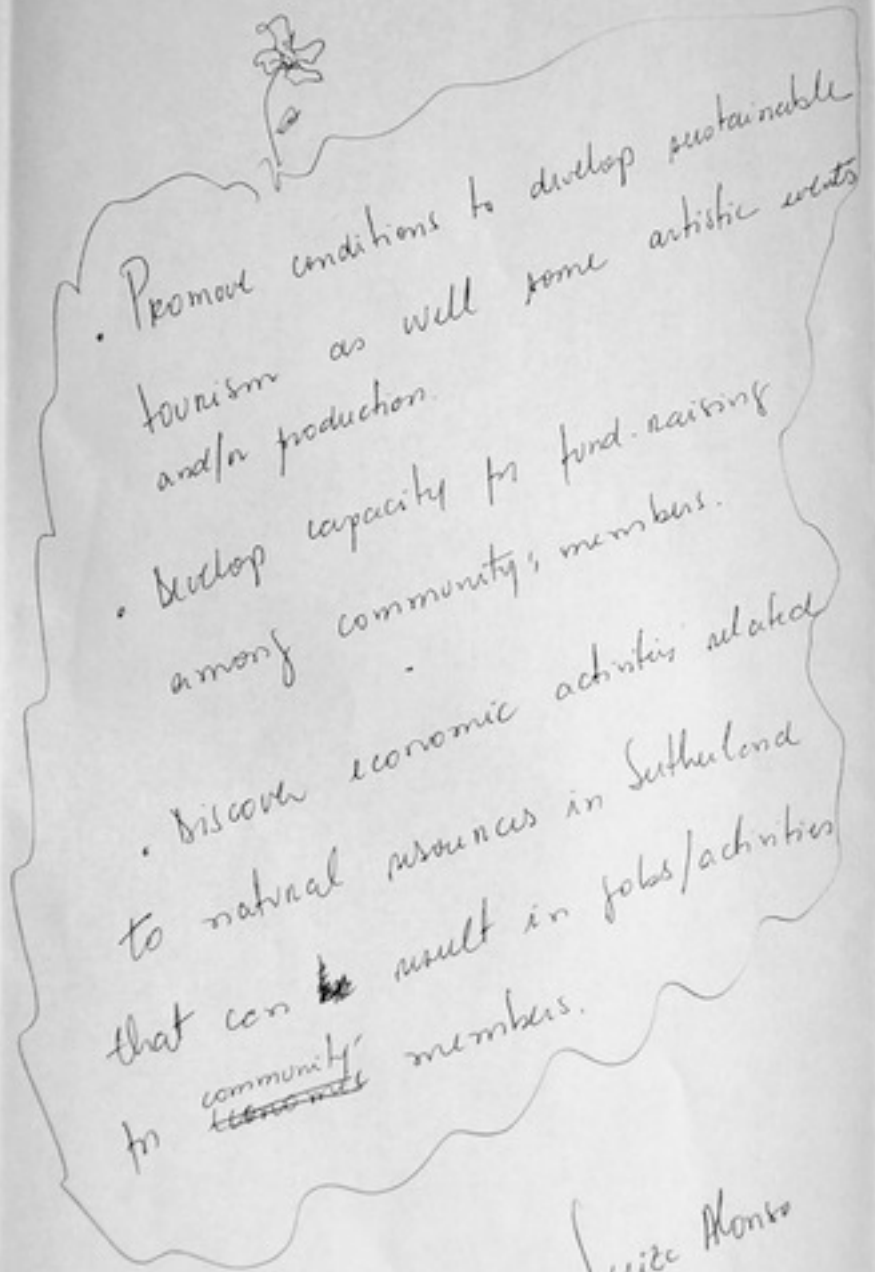 • Promove conditions to develop sustainable
tourism as well some artistic events
and/or production.
• Develop capacity for fund-raising
among community's members.
• Discover economic activities related
to natural resources in Sutherland
that can result in jobs/activities
community'
for members.
Alonso